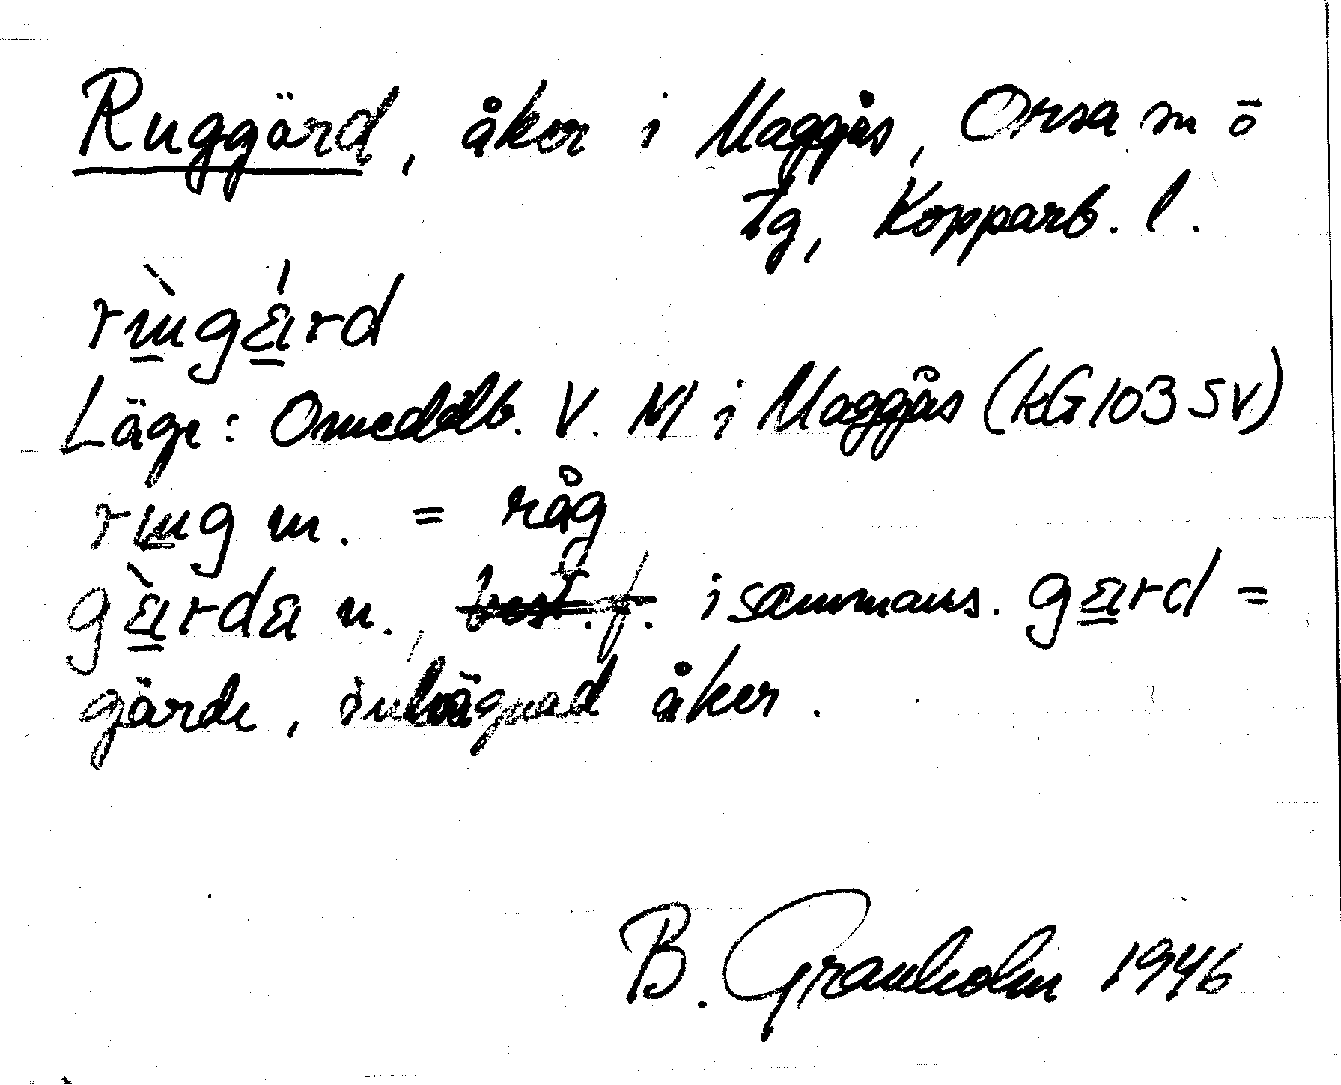 Ruggärd, åker i Maggås, Orsa sn ö
tg, Kopparb. l.
Läge: Omedelb. V. M i Maggås (KG 103 SV)
m. = råg
n., best. f. i sammans. =
gärde, inhägnad åker.
B. Granholm 1946